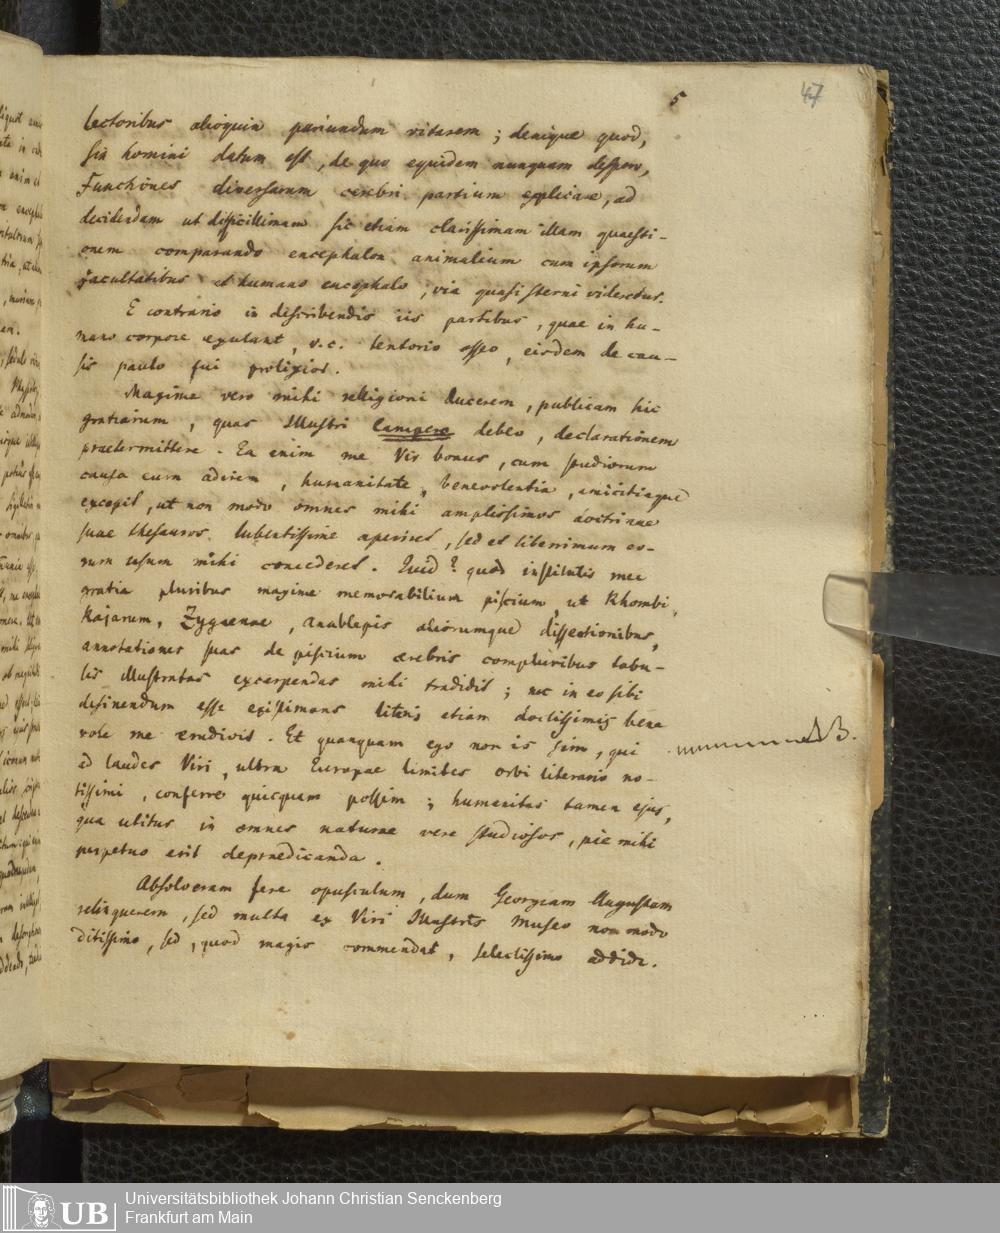 5
47
lectoribus alioquin pariundum vitarem; denique quod,
sin homini datum est, de quo equidem nunquam despero,
Functiones diversarum cerebri partium explicare, ad
decidendam ut difficillimam sic etiam clarissimam illam quaesti-
onem comparando encephalon animalium cum ipsorum
facultatibus et humano encephalo, via quasi sterni videretur.
E contrario in describendis iis partibus, quae in hu-
mano corpore exulant, v. c. tentorio osseo, eisdem de cau-
sis paulo fui prolixior.
Maxime vero mihi religioni ducerem, publicam hic
gratiarum, quas Illustri Campero debeo, declarationem
praetermittere. Ea enim me Vir bonus, cum studiorum
causa eum adirem, humanitate, benevolentia, amicitiaque
excepit, ut non modo omnes mihi amplissimos doctrinae
suae thesauros lubentissime aperiret, sed et liberrimum eo-
rum usum mihi concederet. Quid? quod institutis mei
gratia pluribus maxime memorabilium piscium, ut Rhombi,
Rajarum, Zygaenae, Anablepis aliorumque dissectionibus,
annotationes suas de piscium cerebris compluribus tabu-
lis illustratas excerpendas mihi tradidit; nec in eo sibi
desinendum esse existimans literis etiam doctissimis bene
vole me erudivit. Et quanquam ego non is sim, qui
NB.
ad laudes Viri, ultra Europae limites orbi literario no-
tissimi, conferre quicquam possim; humanitas tamen ejus,
qua utitur in omnes naturae vere studiosos, pie mihi
perpetuo erit depraedicanda.
Absolveram fere opusculum, dum Georgiam Augustam
relinquerem, sed multa ex Viri Illustris Museo non modo
ditissimo, sed, quod magis commendat, selectissimo addidi.
UB
Universitätsbibliothek Johann Christian Senckenberg
Frankfurt am Main